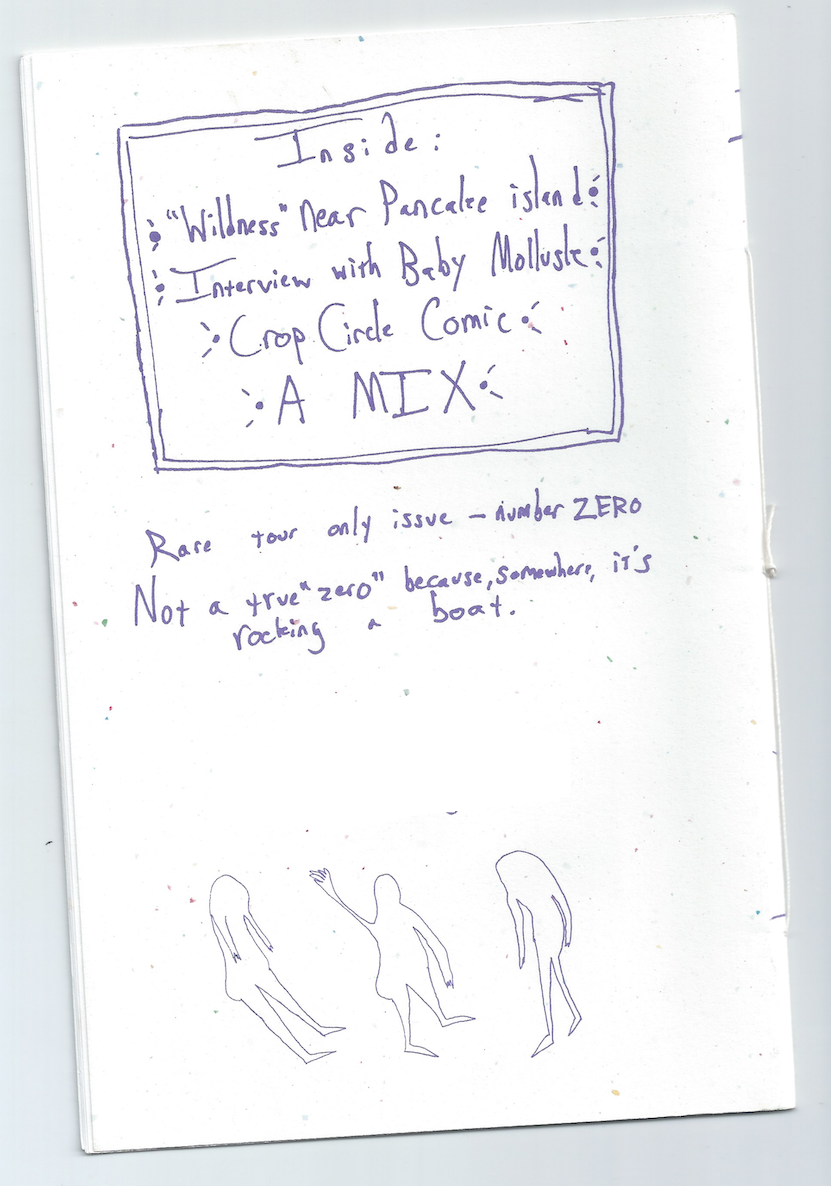 Inside:
"Wildness" Near Pancake island
Interview with Baby Mollusk
Crop Circle Comic
A MIX
Rare tour only issue – number ZERO
Not a true "zero" because, somewhere, it's
rocking a boat.